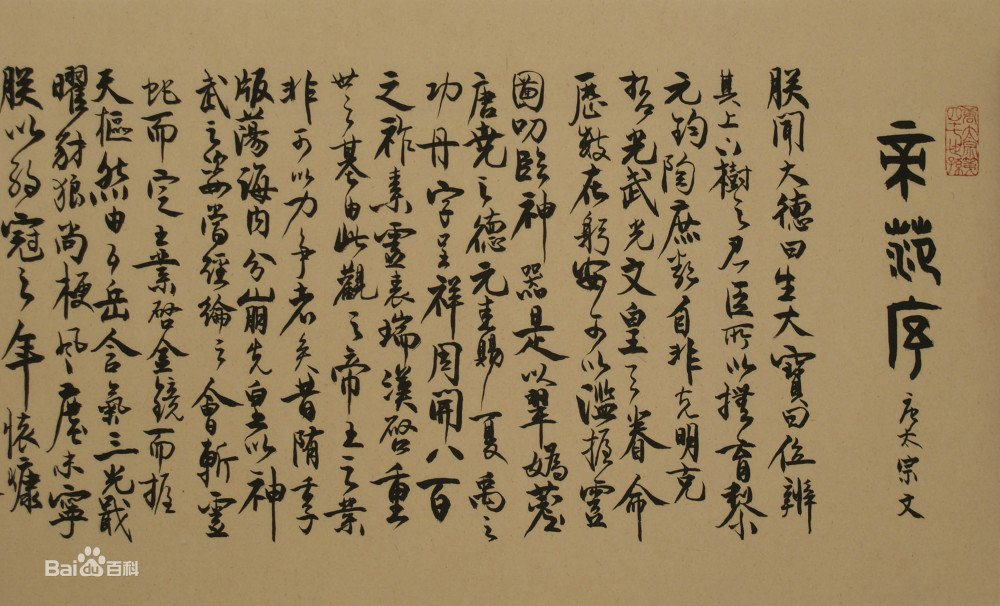 帝範序
唐太宗文
朕聞大德曰生大寶曰位辨
其上下樹之君臣所以撫育黎
元鈞陶庶類自非克明克
哲允武允文皇天眷命
歷數在躬安可以濫握靈
圖叨臨神器是以翠嬀薦
唐堯之德元圭賜夏禹之
功丹字呈祥周開八百
之祚素靈表瑞漢啓重
世之基由此觀之帝王之業
非可以力爭者矣昔隋季
版蕩海内分崩先皇以神
武之姿當經綸之會斬靈
蛇而定王業啓金鏡而握
天樞然由五岳含氣三光戢
曜豺狼尚梗風塵未寧
朕以弱冠之年懷慷
Baidu百科